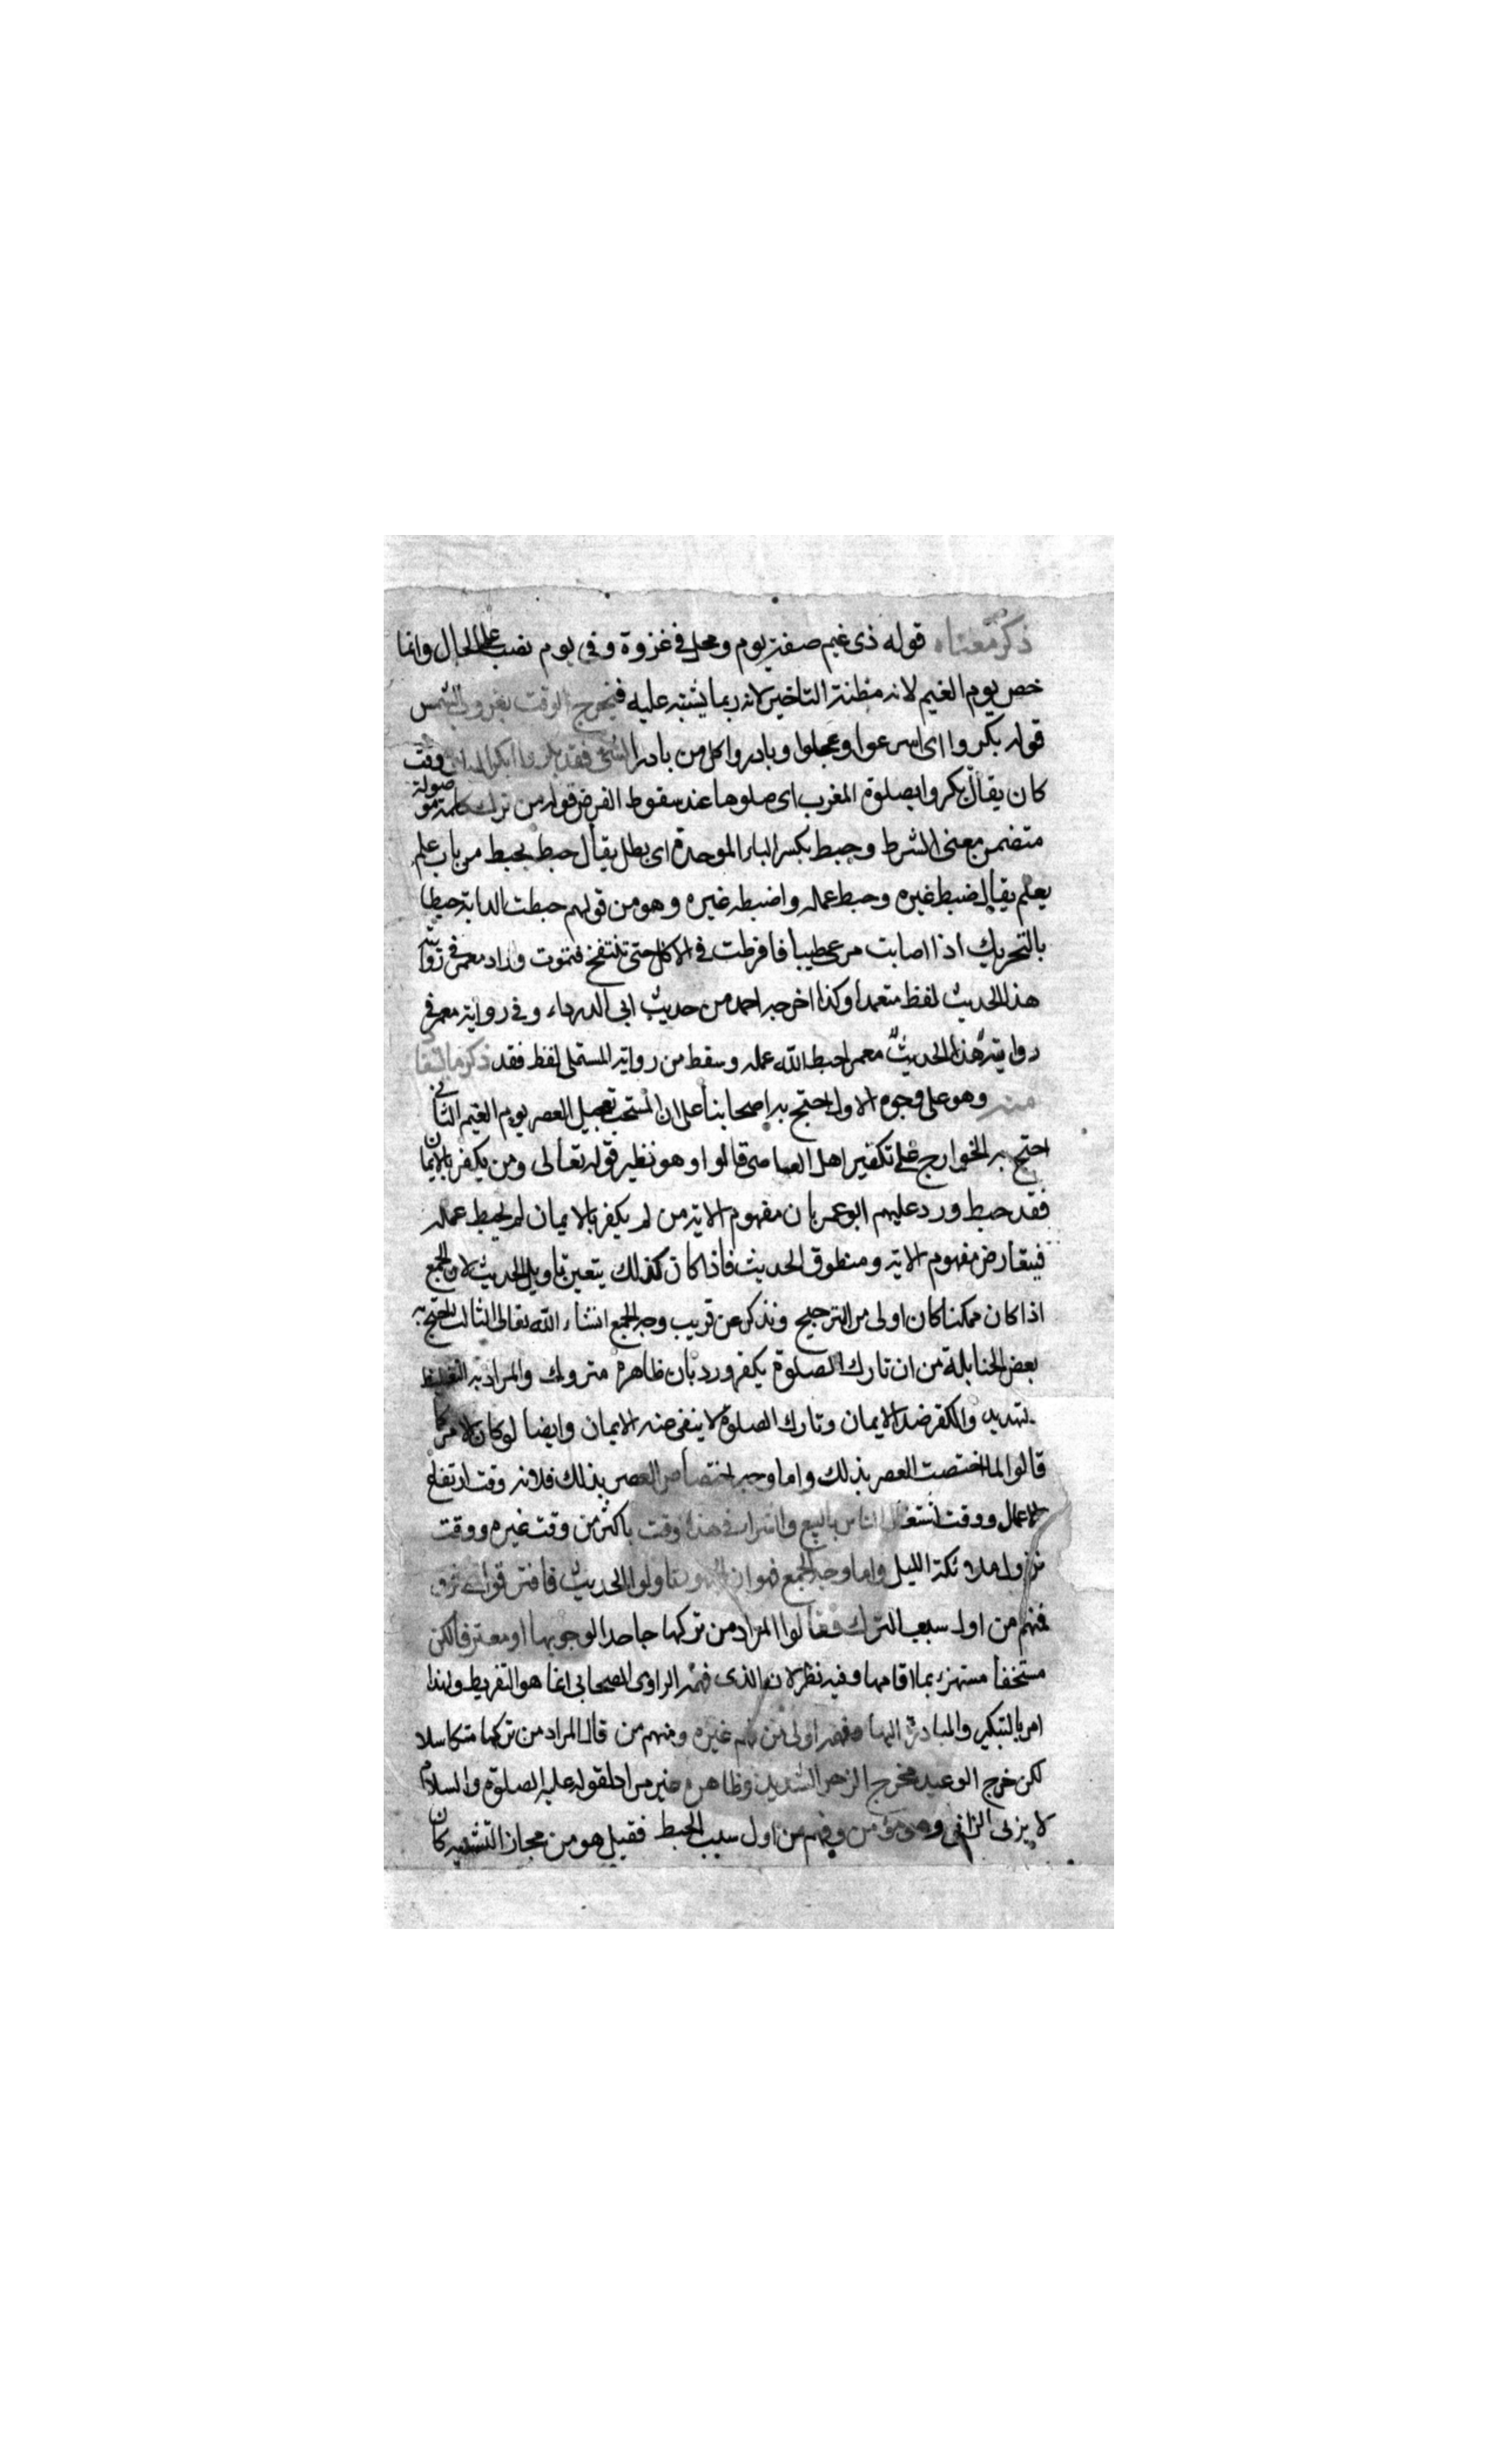 ذكر معناه قوله ذى غيم صفة يوم ومحل فى غزوة وفى يوم نصب على الحال وانما
خص يوم الغيم لانه مظنة التاخير لانه ربما يشتبه عليه فيخرج الوقت بغروب الشمس
قوله بكروا اى اسرعوا وعجلوا وبادروا وكل من بادر الى شئ فقد بكر وابكر اليه اى وقت
كان يقال بكروا بصلوة المغرب اى صلوها عند سقوط القرص قوله من ترك كلمة موصولة
متضمن معنى الشرط وحبط بكسر الباء الموحدة اى بطل يقال حبط يحبط من باب علم
يعلم يقال ضبط غيره وحبط عمله واضبطه غيره وهو من قولهم حبطت الدابة حبطا
بالتحريك اذا اصابت مرعى طيبا فافرطت فى الاكل حتى تنتفخ فتموت وزاد معمر فى روايته
هذا الحديث لفظ متعمدا وكذا اخرجه احمد من حديث ابى الدرداء وفى رواية معمر فى
روايته هذا الحديث معمر احبط الله عمله وسقط من رواية المستملى لفظ فقد ذكر ما يستفاد
منه وهو على وجوه الاول احتج به اصحابنا على ان المستحب تعجيل العصر يوم الغيم الثانى
احتج به الخوارج على تكفير اهل المعاصى قالوا وهو نظير قوله تعالى ومن يكفر بالايمان
فقد حبط ورد عليهم ابو عمر بان مفهوم الاية من لم يكفر بالايمان لم يحبط عمله
فيتعارض مفهوم الاية ومنطوق الحديث فاذا كان كذلك يتعين تاويل الحديث لان الجمع
اذا كان ممكنا كان اولى من الترجيح ونذكر عن قريب وجه الجمع انشاء الله تعالى الثالث احتج به
بعض الحنابلة من ان تارك الصلوة يكفر ورد بان ظاهره متروك والمراد به التغليظ
لتهديد والكفر ضد الايمان وتارك الصلوة لا ينفى عنه الايمان وايضا لو كان الامر كما
قالوا لما اختصت العصر بذلك واما وجه اختصاص العصر بذلك فلانه وقت ارتفاع
الاعمال ووقت اشتغال الناس بالبيع والشراء فى هذا وقت باكثر من وقت غيره ووقت
نزول ملائكة الليل واما وجه الجمع فهو ان الجمهور تاولوا الحديث فافترقوا فرق
فمنهم من اول سبب الترك فقالوا المراد من تركها جاحدا لوجوبها او معترفا لكن
مستخفا مستهزء بما اقامها وفيه نظر لان الذى فهمه الراوى الصحابى انما هو التفريط ولهذا
امر بالتبكير والمبادرة اليها ففهمه اولى من فهم غيره ومنهم من قال المراد من تركها متكاسلا
لكن خرج الوعيد مخرج الزجر الشديد وظاهره غير مراد لقوله عليه الصلوة والسلام
لا يزنى الزانى وهو مؤمن ومنهم من اول سبب الحبط فقيل هو من مجاز التشبيه كان